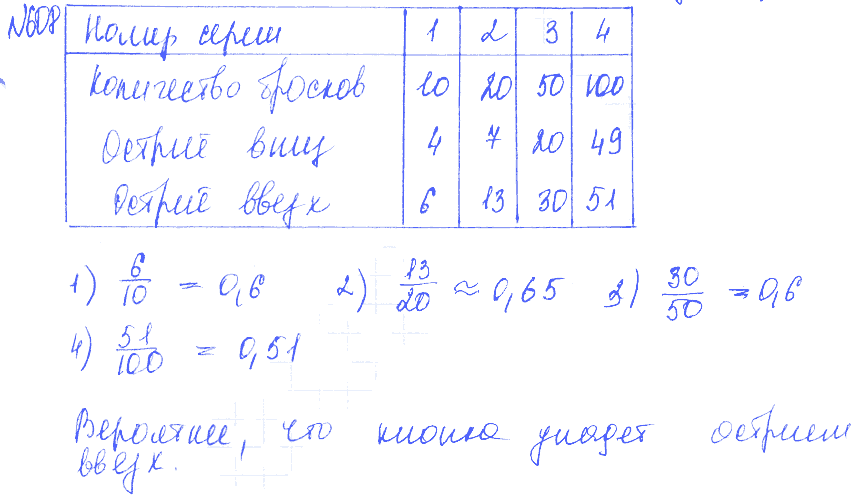 №608
Номер серии 1 2 3 4
Количество бросков 10 20 50 100
Острие вниз 4 7 20 49
Острие вверх 6 13 30 51
1) 6/10 = 0,6 2) 13/20 ≈ 0,65 3) 30/50 = 0,6
4) 51/100 = 0,51
Вероятнее, что кнопка упадет острием
вверх.